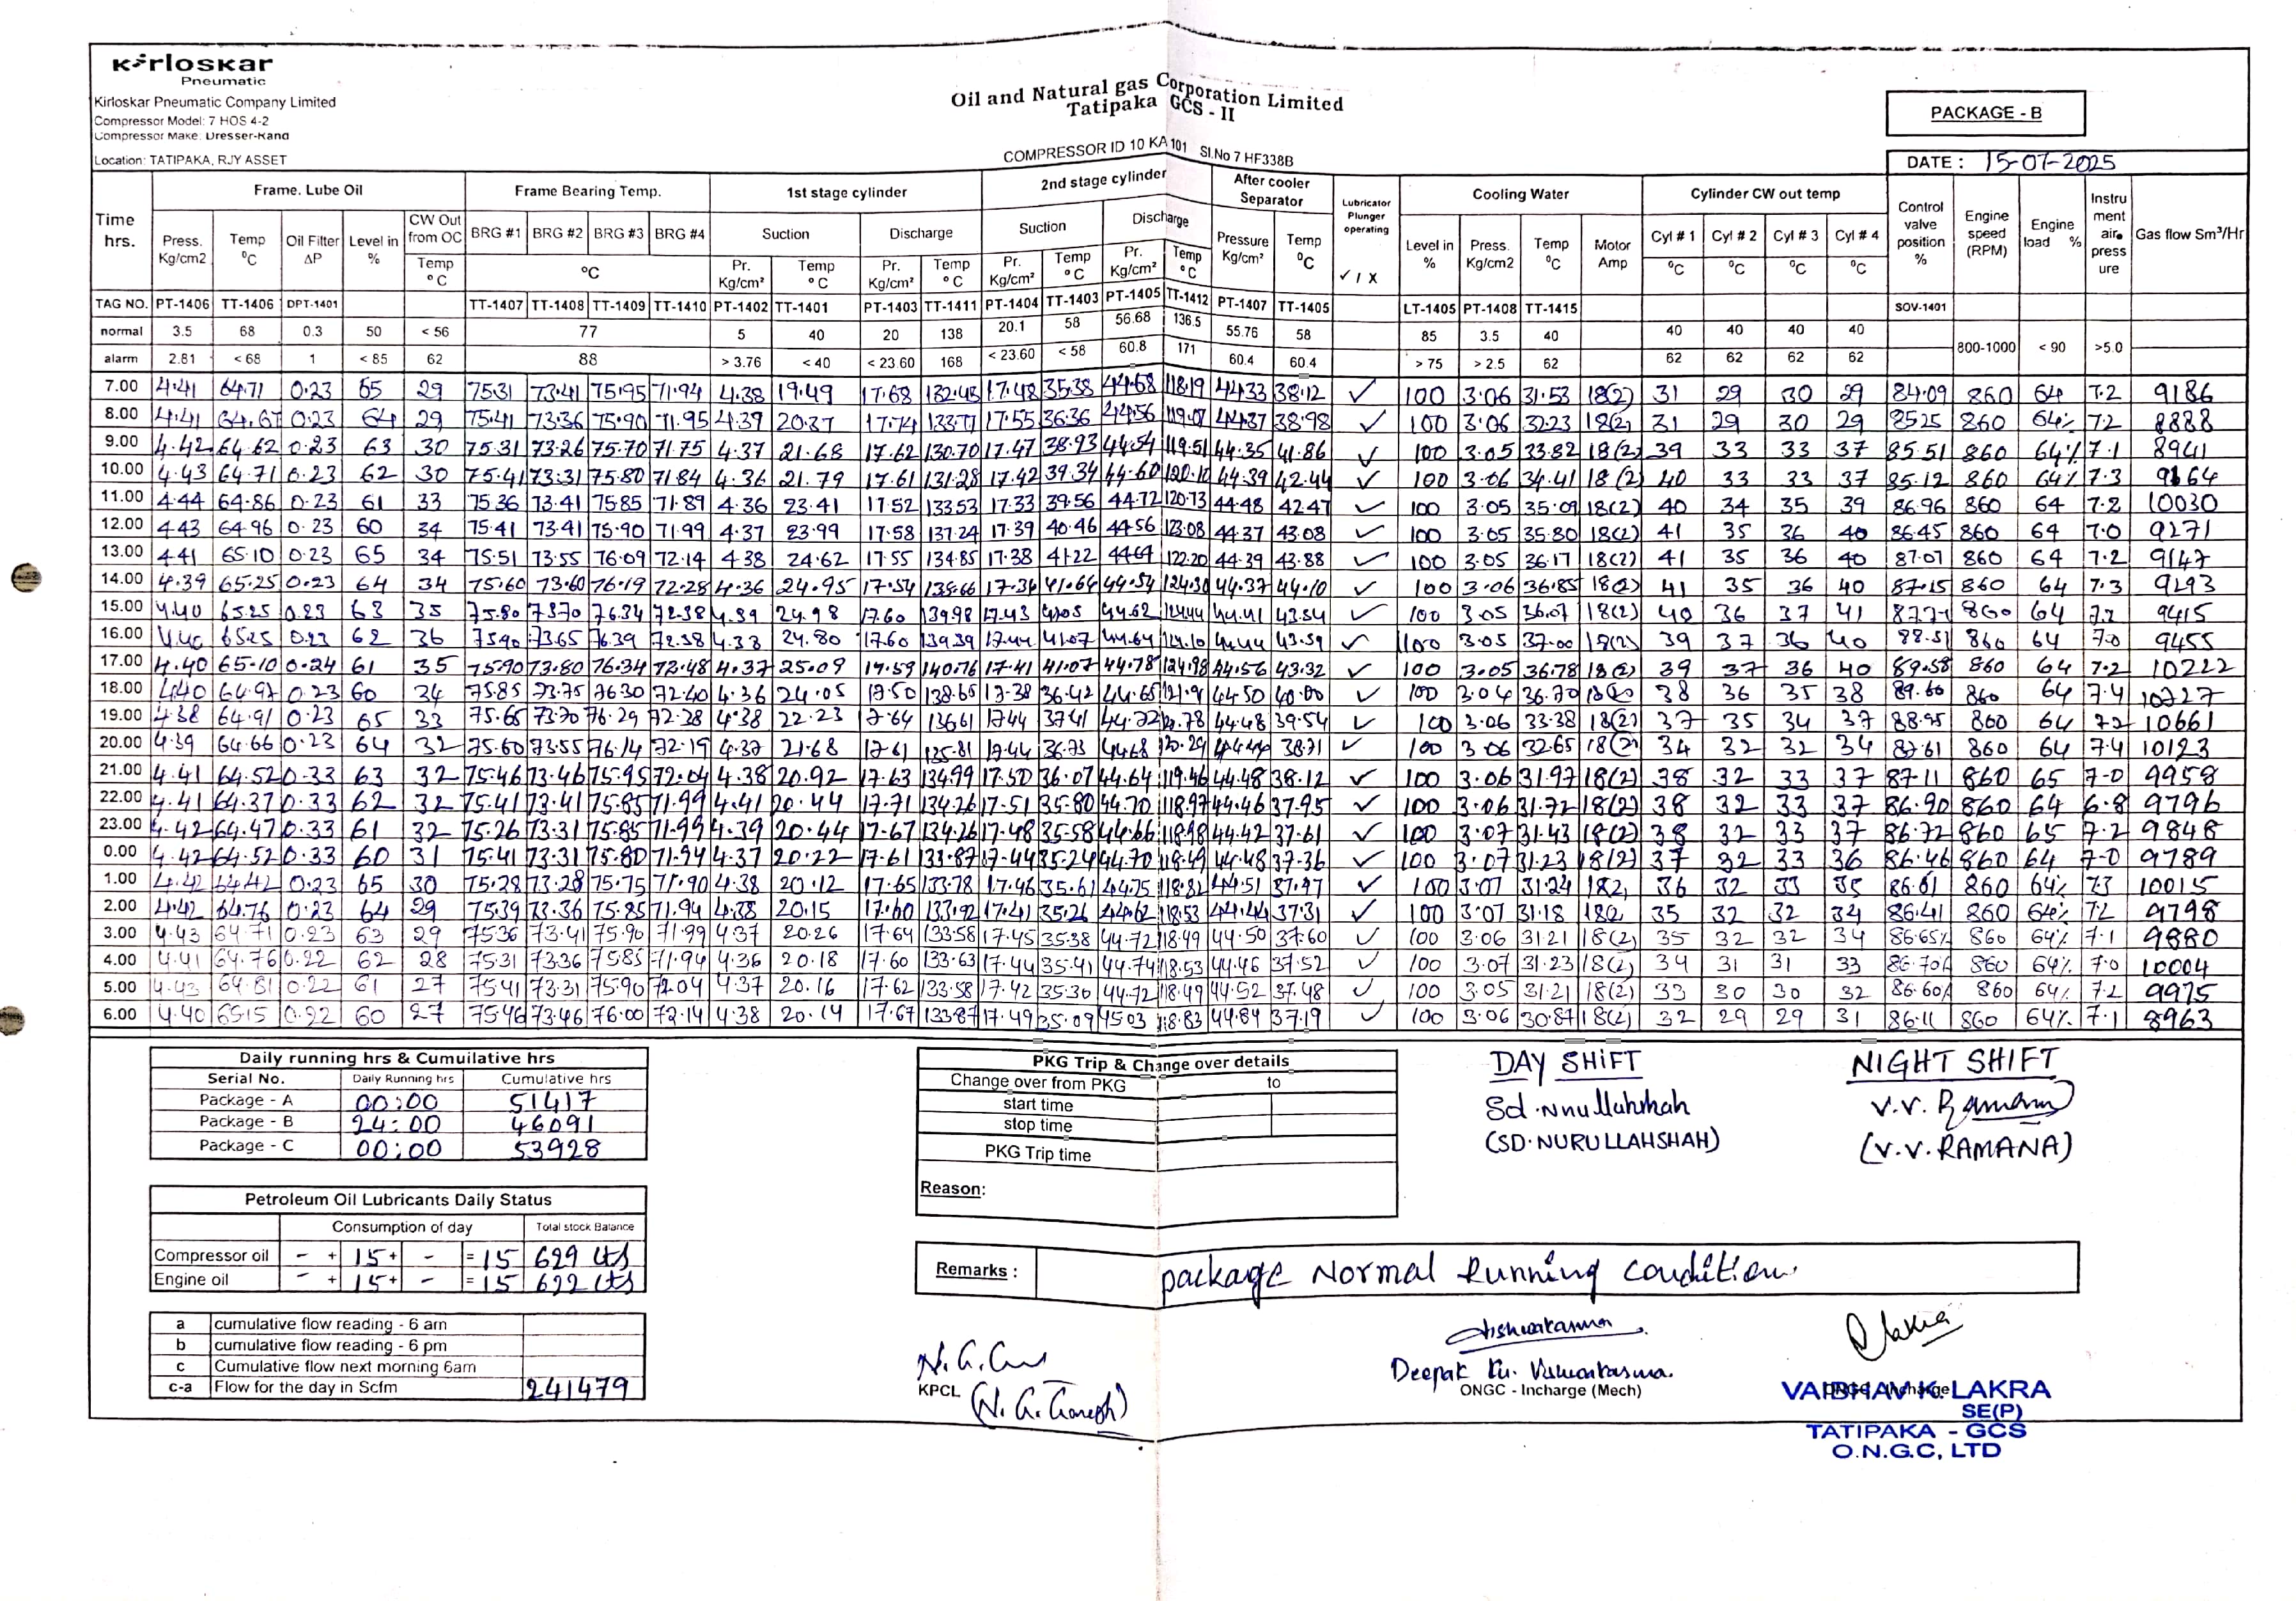 Kirloskar
Pneumatic
Kirloskar Pneumatic Company Limited
Compressor Model: 7 HOS 4-2
Compressor Make: Dresser-Rand
Location: TATIPAKA, RJY ASSET
Oil and Natural gas Corporation Limited
Tatipaka GCS - II
COMPRESSOR ID 10 KA 101 Sl.No 7 HF338B
PACKAGE - B
DATE : 15-07-2025
Time hrs. Frame. Lube Oil Frame Bearing Temp. 1st stage cylinder 2nd stage cylinder After cooler Separator Lubricator Plunger operating ✓ / X Cooling Water Cylinder CW out temp Control valve position % Engine speed (RPM) Engine load % Instru ment air press ure Gas flow Sm³/Hr
Press. Kg/cm2 Temp ⁰C Oil Filter ΔP Level in % CW Out from OC Temp °C BRG #1 BRG #2 BRG #3 BRG #4 ⁰C Suction Discharge Suction Discharge Pressure Kg/cm² Temp ⁰C Level in % Press. Kg/cm2 Temp ⁰C Motor Amp Cyl # 1 Cyl # 2 Cyl # 3 Cyl # 4
Pr. Kg/cm² Temp °C Pr. Kg/cm² Temp °C Pr. Kg/cm² Temp °C Pr. Kg/cm² Temp °C ⁰C ⁰C ⁰C ⁰C
TAG NO. PT-1406 TT-1406 DPT-1401 TT-1407 TT-1408 TT-1409 TT-1410 PT-1402 TT-1401 PT-1403 TT-1411 PT-1404 TT-1403 PT-1405 TT-1412 PT-1407 TT-1405 LT-1405 PT-1408 TT-1415 SOV-1401
normal 3.5 68 0.3 50 < 56 77 5 40 20 138 20.1 58 56.68 136.5 55.76 58 85 3.5 40 40 40 40 40
alarm 2.81 < 68 1 < 85 62 88 > 3.76 < 40 < 23.60 168 < 23.60 < 58 60.8 171 60.4 60.4 > 75 > 2.5 62 62 62 62 62 800-1000 < 90 >5.0
7.00 4.41 64.71 0.23 65 29 75.31 73.41 75.95 71.94 4.38 19.49 17.68 132.45 17.48 35.38 44.68 118.19 44.33 38.12 ✓ 100 3.06 31.53 18(2) 31 29 30 29 84.09 860 64 7.2 9186
8.00 4.41 64.67 0.23 64 29 75.41 73.36 75.90 71.95 4.39 20.37 17.74 133.77 17.55 36.36 44.56 119.07 44.37 38.98 ✓ 100 3.06 32.23 18(2) 31 29 30 29 85.25 860 64% 7.2 8888
9.00 4.42 64.62 0.23 63 30 75.31 73.26 75.70 71.75 4.37 21.68 17.62 130.70 17.47 38.93 44.54 119.51 44.35 41.86 ✓ 100 3.05 33.82 18(2) 39 33 33 37 85.51 860 64% 7.1 8941
10.00 4.43 64.71 0.23 62 30 75.41 73.31 75.80 71.84 4.36 21.79 17.61 131.28 17.42 39.34 44.60 120.10 44.39 42.44 ✓ 100 3.06 34.41 18(2) 40 33 33 37 85.12 860 64% 7.3 9164
11.00 4.44 64.86 0.23 61 33 75.36 73.41 75.85 71.89 4.36 23.41 17.52 133.53 17.33 39.56 44.72 120.73 44.48 42.47 ✓ 100 3.05 35.09 18(2) 40 34 35 39 86.96 860 64 7.2 10030
12.00 4.43 64.96 0.23 60 34 75.41 73.41 75.90 71.99 4.37 23.99 17.58 137.24 17.39 40.46 44.56 123.08 44.37 43.08 ✓ 100 3.05 35.80 18(2) 41 35 36 40 86.45 860 64 7.0 9271
13.00 4.41 65.10 0.23 65 34 75.51 73.55 76.09 72.14 4.38 24.62 17.55 134.85 17.38 41.22 122.20 44.39 43.88 ✓ 100 3.05 36.17 18(2) 41 35 36 40 87.07 860 64 7.2 9147
14.00 4.39 65.25 0.23 64 34 75.60 73.60 76.19 72.28 4.36 24.95 17.54 138.66 17.36 41.64 44.54 124.30 44.37 44.10 ✓ 100 3.06 36.85 18(2) 41 35 36 40 87.15 860 64 7.3 9293
15.00 4.40 65.25 0.23 63 35 75.80 73.70 76.34 72.38 4.39 24.98 17.60 139.98 17.43 41.05 44.62 124.44 44.41 43.54 ✓ 100 3.05 36.07 18(2) 40 36 37 41 87.71 860 64 7.2 9415
16.00 65.25 0.23 62 36 75.90 73.65 76.39 72.38 4.33 24.80 17.60 139.39 17.44 41.07 44.64 124.10 44.44 43.59 ✓ 100 3.05 37.00 18(2) 39 37 36 40 88.51 860 64 7.0 9455
17.00 4.40 65.10 0.24 61 35 75.90 73.80 76.34 72.48 4.37 25.09 17.59 140.76 17.41 41.07 44.78 124.98 44.56 43.32 ✓ 100 3.05 36.78 18(2) 39 37 36 40 89.58 860 64 7.2 10222
18.00 4.40 64.97 0.23 60 34 75.85 73.75 76.30 72.40 4.36 24.05 17.50 138.65 17.38 36.42 44.65 121.91 44.50 40.00 ✓ 100 3.04 36.70 18(2) 38 36 35 38 89.60 860 64 7.4 10727
19.00 4.38 64.91 0.23 65 33 75.65 73.70 76.29 72.38 4.38 22.23 17.64 136.61 17.44 37.41 44.72 44.48 39.54 ✓ 100 3.06 33.38 18(2) 37 35 34 37 88.95 860 64 7.2 10661
20.00 4.39 64.66 0.23 64 32 75.60 73.55 76.14 72.19 4.37 21.68 17.61 135.81 17.44 36.73 44.68 120.29 44.44 38.71 ✓ 100 3.06 32.65 18(2) 34 32 32 34 87.61 860 64 7.4 10123
21.00 4.41 64.52 0.33 63 32 75.46 73.46 75.95 72.04 4.38 20.92 17.63 134.99 17.50 36.07 44.64 119.46 44.48 38.12 ✓ 100 3.06 31.97 18(2) 38 32 33 37 87.11 860 65 7.0 9958
22.00 4.41 64.37 0.33 62 32 75.41 73.41 75.85 71.99 4.41 20.44 17.71 134.26 17.51 35.80 44.70 118.97 44.46 37.95 ✓ 100 3.06 31.72 18(2) 38 32 33 37 86.90 860 64 6.8 9796
23.00 4.42 64.47 0.33 61 32 75.26 73.31 75.85 71.99 4.39 20.44 17.67 134.26 17.48 35.58 44.66 118.98 44.42 37.61 ✓ 100 3.07 31.43 18(2) 38 32 33 37 86.72 860 65 7.2 9848
0.00 4.42 64.52 0.33 60 31 75.41 73.31 75.80 71.94 4.37 20.22 17.61 133.87 17.44 35.24 44.70 118.49 44.48 37.36 ✓ 100 3.07 31.23 18(2) 37 32 33 36 86.46 860 64 7.0 9789
1.00 4.42 64.42 0.23 65 30 75.28 73.28 75.75 71.90 4.38 20.12 17.65 133.78 17.46 35.61 44.75 118.82 44.51 37.47 ✓ 100 3.07 31.24 18(2) 36 32 33 35 86.61 860 64% 7.3 10015
2.00 4.42 64.76 0.23 64 29 75.39 73.36 75.85 71.94 4.38 20.15 17.60 133.92 17.41 35.26 44.62 118.53 44.44 37.31 ✓ 100 3.07 31.18 18(2) 35 32 32 34 86.41 860 64% 7.2 9798
3.00 4.43 64.71 0.23 63 29 75.36 73.41 75.90 71.99 4.37 20.26 17.64 133.58 17.45 35.38 44.72 118.49 44.50 37.60 ✓ 100 3.06 31.21 18(2) 35 32 32 34 86.65% 860 64% 7.1 9880
4.00 4.41 64.76 0.22 62 28 75.31 73.36 75.85 71.94 4.36 20.18 17.60 133.63 17.44 35.41 44.74 118.53 44.46 37.52 ✓ 100 3.07 31.23 18(2) 34 31 31 33 86.70% 860 64% 7.0 10004
5.00 4.43 64.81 0.22 61 27 75.41 73.31 75.90 72.04 4.37 20.16 17.62 133.58 17.42 35.30 44.72 118.49 44.52 37.48 ✓ 100 3.05 31.21 18(2) 33 30 30 32 86.60% 860 64% 7.2 9975
6.00 4.40 65.15 0.22 60 27 75.46 73.46 76.00 72.14 4.38 20.14 17.67 133.87 17.49 35.09 45.03 118.83 44.84 37.19 ✓ 100 3.06 30.87 18(2) 32 29 29 31 86.11 860 64% 7.1 8963
Daily running hrs & Cumuilative hrs
Serial No. Daily Running hrs Cumulative hrs
Package - A 00:00 51417
Package - B 24:00 46091
Package - C 00:00 53928
Petroleum Oil Lubricants Daily Status
Consumption of day Total stock Balance
Compressor oil - + 15 + - = 15 629 Lts
Engine oil - + 15 + - = 15 622 Lts
a cumulative flow reading - 6 am
b cumulative flow reading - 6 pm
c Cumulative flow next morning 6am
c-a Flow for the day in Scfm 241479
PKG Trip & Change over details
Change over from PKG to
start time
stop time
PKG Trip time
Reason:
DAY SHIFT
(SD. NURULLAHSHAH)
NIGHT SHIFT
V.V. Ramana
(V.V. RAMANA)
Remarks : package Normal Running condition.
KPCL
(N. G. Ganesh)
Vishwakarma
Deepak Ku. Vishwakarma.
ONGC - Incharge (Mech)
Lakra
VAIBHAV K. LAKRA
SE(P)
TATIPAKA - GCS
O.N.G.C, LTD